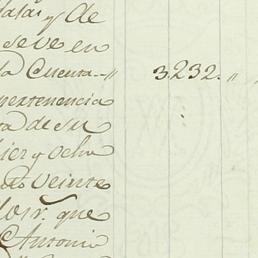 y de
se ve en
la Cuenta..//
3.232.,,
pertenencia
ra de su
diez y ocho
veinte
que
Antonio